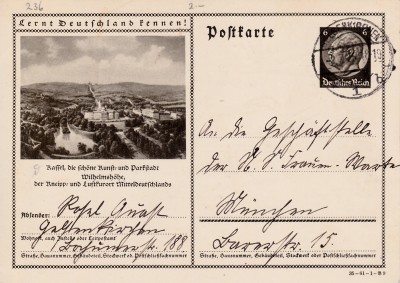 236
2.-
Lernt Deutschland kennen!
Postkarte
6 6
Deutsches Reich
1
Kassel, die schöne Kunst- und Parkstadt
Wilhelmshöhe,
der Kneipp- und Luftkurort Mitteldeutschlands
Absender: Rosel Quast
Gelsenkirchen
Wohnort, auch Zustell- oder Leitpostamt
Bochumerstr. 188
Straße, Hausnummer, Gebäudeteil, Stockwerk od. Postschließfachnummer
An die Geschäftsstelle
der N. S. Frauen-Warte
München
Barerstr. 15.
Straße, Hausnummer, Gebäudeteil, Stockwerk oder Postschließfachnummer